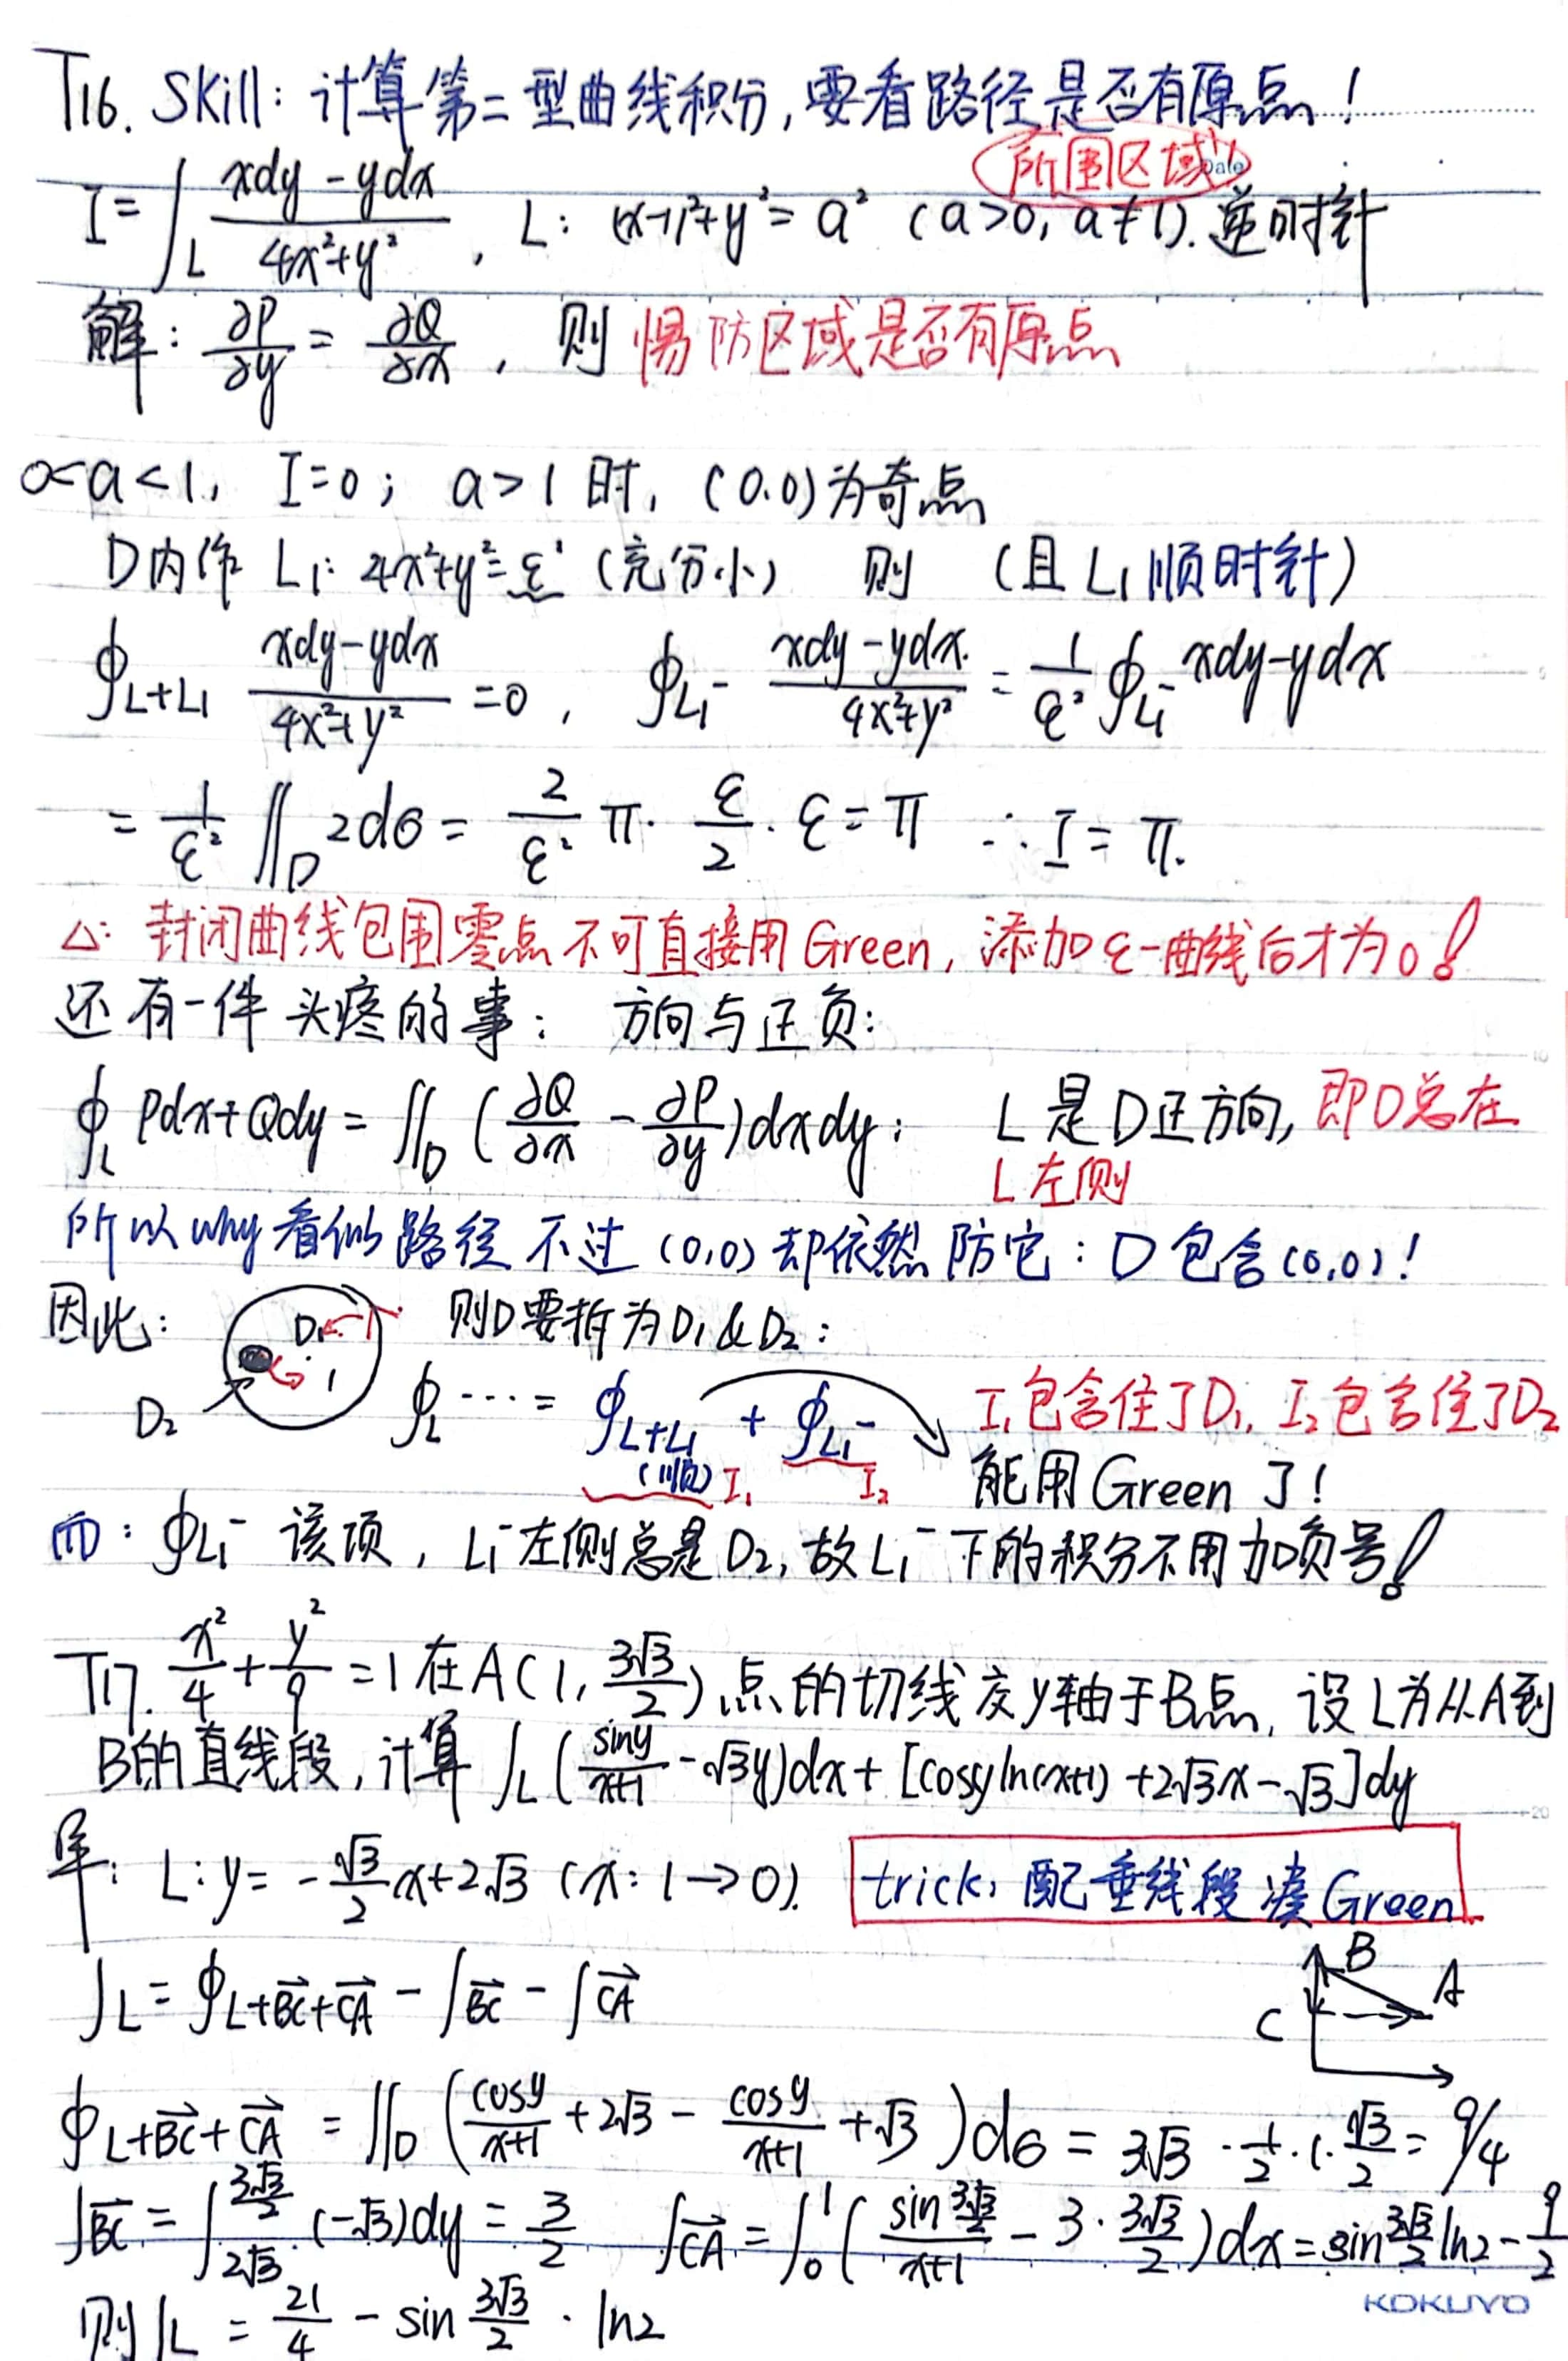 T16. Skill: 计算第二型曲线积分,要看路径是否有原点!
所围区域 Date
I = ∫_L (xdy - ydx)/(4x²+y²), L: (x-1)²+y² = a² (a>0, a≠1). 逆时针
解: ∂P/∂y = ∂Q/∂x, 则 惕防区域是否有原点
0<a<1, I=0; a>1 时, (0.0)为奇点
D内作 L₁: 4x²+y²=ε² (充分小) 则 (且L₁顺时针)
∮_{L+L₁} (xdy-ydx)/(4x²+y²) = 0, ∮_{L₁⁻} (xdy-ydx)/(4x²+y²) = 1/ε² ∮_{L₁⁻} xdy-ydx
= 1/ε² ∬_D 2dσ = 2/ε² π · ε/2 · ε = π ∴ I = π.
△: 封闭曲线包围零点不可直接用Green, 添加ε-曲线后才为0!
还有一件头疼的事: 方向与正负:
∮_L Pdx+Qdy = ∬_D (∂Q/∂x - ∂P/∂y)dxdy: L是D正方向, 即D总在
L左侧
所以why看似路径不过(0,0)却依然防它: D包含(0,0)!
因此: D₁ 则D要拆为D₁&D₂:
D₂ ∮_L ···· = ∮_{L+L₁} + ∮_{L₁⁻} I₁包含住了D₁, I₂包含住了D₂
(顺) I₁ I₂ 能用Green了!
而: ∮_{L₁⁻} 该项, L₁⁻左侧总是D₂, 故L₁⁻下的积分不用加负号!
T17. x²/4 + y²/9 = 1 在A(1, 3√3/2)点的切线交y轴于B点, 设L为从A到
B的直线段, 计算 ∫_L (siny/(x+1) - √3y)dx + [cosyln(x+1) + 2√3x - √3]dy
解: L: y = -√3/2 x + 2√3 (x: 1→0). trick: 配垂线段凑Green
∫_L = ∮_{L+BC→+CA→} - ∫_{BC→} - ∫_{CA→} B A C
∮_{L+BC→+CA→} = ∬_D (cosy/(x+1) + 2√3 - cosy/(x+1) + √3)dσ = 3√3 · 1/2 · 1 · √3/2 = 9/4
∫_{BC→} = ∫_{2√3}^{3√3/2} (-√3)dy = 3/2 ∫_{CA→} = ∫_0^1 (sin(3√3/2)/(x+1) - 3 · 3√3/2)dx = sin 3√3/2 ln2 - 9/2
则∫_L = 21/4 - sin 3√3/2 · ln2
KOKUYO